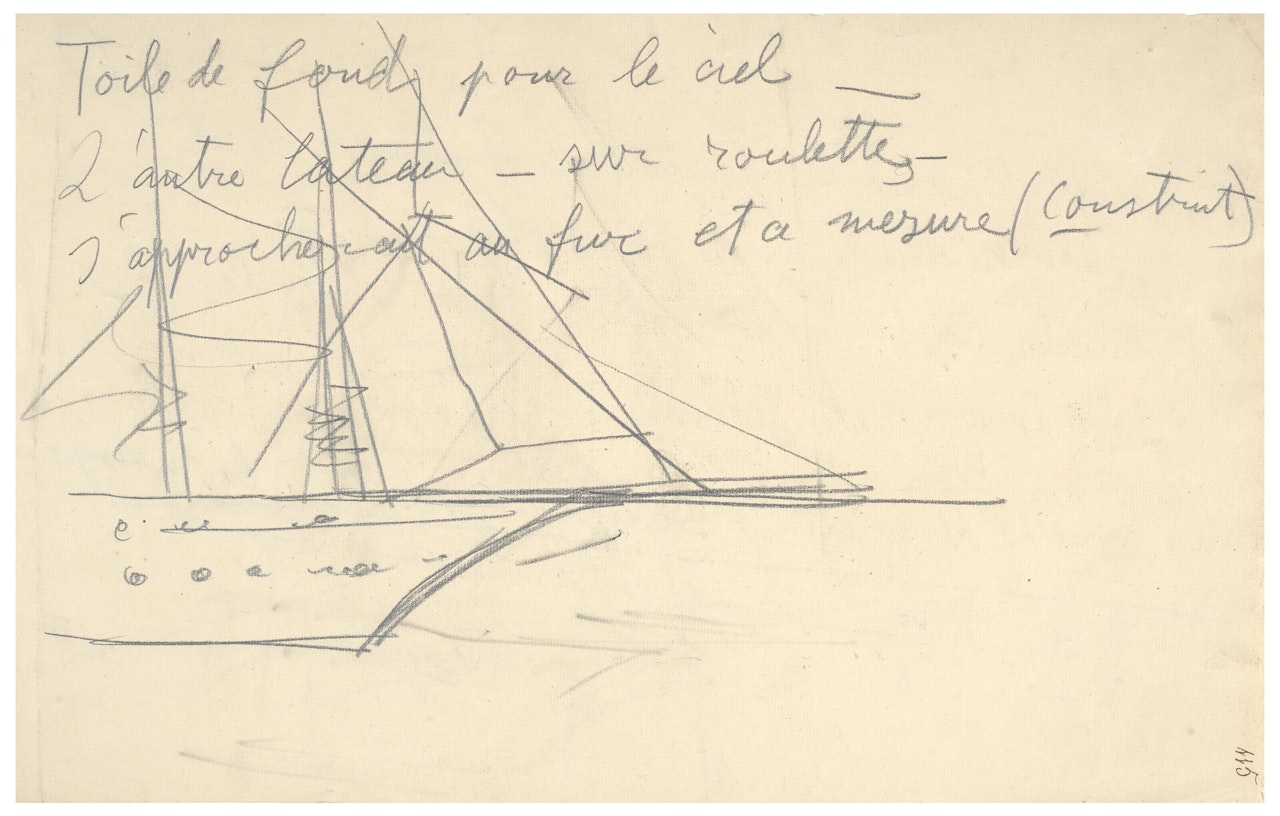 Toile de fond pour le ciel —
L'autre bateau — sur roulettes —
s'approcherait au fur et a mesure (construit)